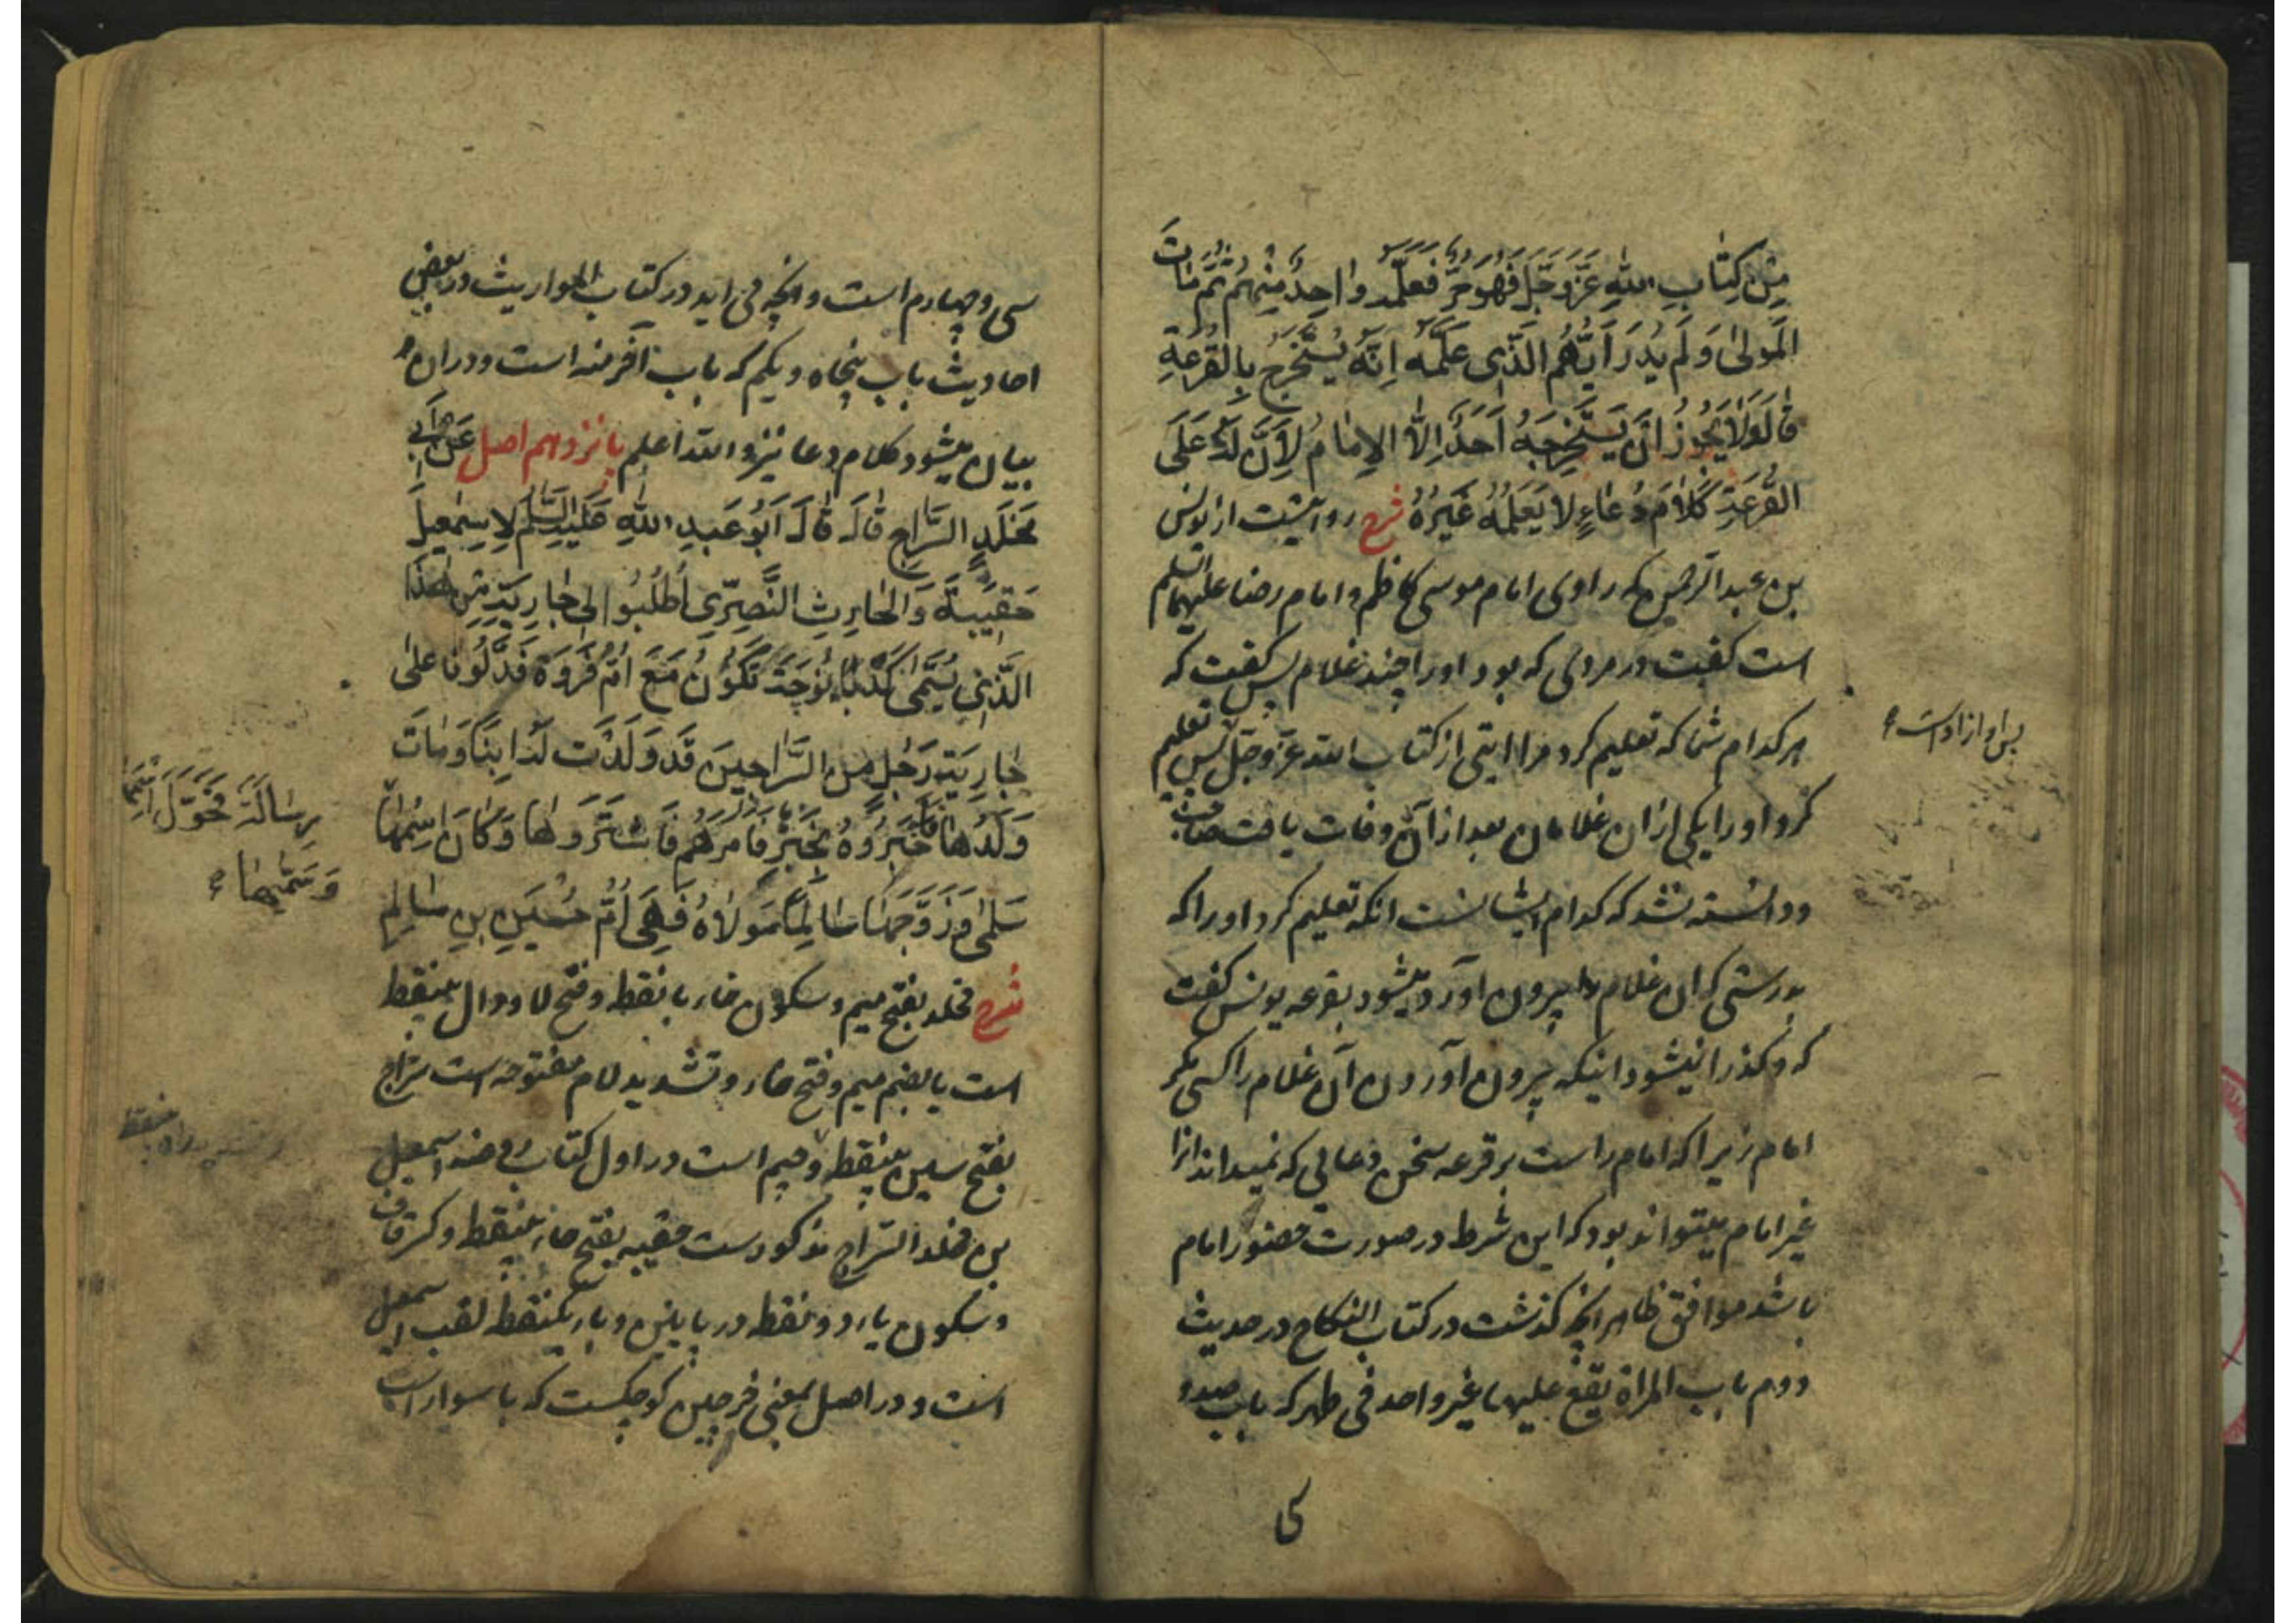 مِنْ كِتَابِ اللهِ عَزَّ وَجَلَّ فَهُوَ حُرٌّ فَعَلَّمَهُ وَاحِدٌ مِنْهُمْ ثُمَّ مَاتَ
الْمَوْلَىٰ وَلَمْ يُدْرَ أَيُّهُمُ الَّذِى عَلَّمَهُ اِنَّهُ يُسْتَخْرَجُ بِالْقُرْعَةِ
قَالَ وَلَا يَجُوزُ اَنْ يَسْتَخْرِجَهُ اَحَدٌ اِلَّا الْاِمَامُ لِاَنَّ لَهُ عَلَى
الْقُرْعَةِ كَلَامٌ وَدُعَاءٍ لَا يَعْلَمُهُ غَيْرُهُ شرح روایتست از یونس
بن عبد الرحمن که راوی امام موسی کاظم و امام رضا علیهما السلم
است گفت در مردی که بود او را چند غلام پس گفت که
هر کدام شما که تعلیم کرد مرا ایتی از کتاب الله عز وجل پس تعلیم
پس او ازادست
کرد او را یکی ازان غلامان بعد از آن وفات یافت صاحب
و دانسته نشد که کدام ایشانست انکه تعلیم کرد او را که
بدرستی که ان غلام را بیرون اورده میشود بقرعه یونس گفت
که و کذرا نیشود اینکه بیرون آوردن آن غلام را کسی مگر
امام زیرا که امام راست بر قرعه سخن و دعایی که نمیداند انرا
غیر امام میتواند بود که این شرط در صورت حضور امام
باشد موافق ظاهر انچه گذشت در کتاب النکاح در حدیث
دوم باب المراة یقع علیها غیر واحد فی طهر که باب صد و
سی
سی و چهارم است و انچه می اید در کتاب المواریث در بعض
احادیث باب پنجاه و یکم که باب آخر منه است و دران
بیان میشود کلام و دعا نیز و الله اعلم پانزدهم اصل عَنْ اَبِى
مَخْلَدٍ السَّرَّاجِ قَالَ قَالَ اَبُو عَبْدِ اللهِ عَلَيْهِ السَّلَمُ لِاِسْمٰعِيلَ
حَقِيبَةَ وَالْحَارِثِ النَّصْرِىِّ اُطْلُبُوا لِى جَارِيَةً مِنْ هٰذَا
الَّذِى يُسَمَّىٰ كَدْبَانُوجَةَ تَكُونُ مَعَ اُمِّ فَرْوَةَ فَدَلُّونَا عَلَىٰ
جَارِيَةِ رَجُلٍ مِنَ السَّرَّاجِينَ قَدْ وَلَدَتْ لَهُ ابْنًا وَمَاتَ
وَلَدُهَا فَاَخْبَرُوهُ بِخَبَرِهَا فَاَمَرَهُمْ فَاشْتَرَوْهَا وَكَانَ اِسْمُهَا
رِسَالَةَ فَحَوَّلَ اسْمَهَا
وَسَمَّيهَا
سَلْمَىٰ وَزَوَّجَهَا سَالِمًا مَوْلَاهُ فَهِىَ اُمُّ حُسَيْنِ بْنِ سَالِمٍ
شرح مخلد بفتح میم و سکون خاء با نقطه و فتح لام و دال بینقطه
است یا بضم میم و فتح خاء و تشدید لام مفتوحه است سراج
بفتح سین بینقطه و جیم است در اول کتاب روضه اسمعیل
بن مخلد السراج مذکورست حقیبه بفتح حاء بینقطه و کسر قاف
و سکون یاء دو نقطه در پایین و باء یکنقطه لقب اسمعیل
است و در اصل بمعنی خرجین کوچکست که با سوار است